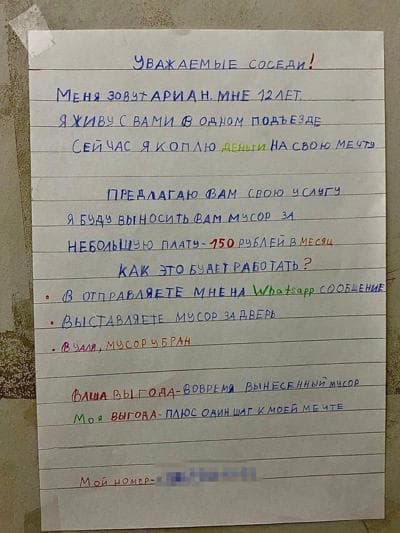 УВАЖАЕМЫЕ СОСЕДИ!
МЕНЯ ЗОВУТ АРИАН. МНЕ 12 ЛЕТ.
Я ЖИВУ С ВАМИ В ОДНОМ ПОДЪЕЗДЕ
СЕЙЧАС Я КОПЛЮ ДЕНЬГИ НА СВОЮ МЕЧТУ
ПРЕДЛАГАЮ ВАМ СВОЮ УСЛУГУ
Я БУДУ ВЫНОСИТЬ ВАМ МУСОР ЗА
НЕБОЛЬШУЮ ПЛАТУ - 150 РУБЛЕЙ В МЕСЯЦ
КАК ЭТО БУДЕТ РАБОТАТЬ?
• В ОТПРАВЛЯЕТЕ МНЕ НА Whatsapp СООБЩЕНИЕ
• ВЫСТАВЛЯЕТЕ МУСОР ЗА ДВЕРЬ
• ВУАЛЯ, МУСОР УБРАН
ВАША ВЫГОДА - ВОВРЕМЯ ВЫНЕСЕННЫЙ МУСОР
МОЯ ВЫГОДА - ПЛЮС ОДИН ШАГ К МОЕЙ МЕЧТЕ
МОЙ НОМЕР -